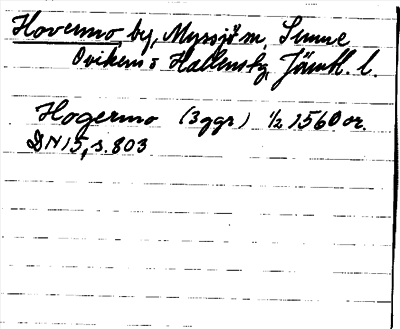 Hovermo by, Myssjö sn, Sunne
Ovikens o Hallens tg, Jämtl. l.
Hogermo (3 ggr) 1/2 1560 or.
DN 15, s. 803